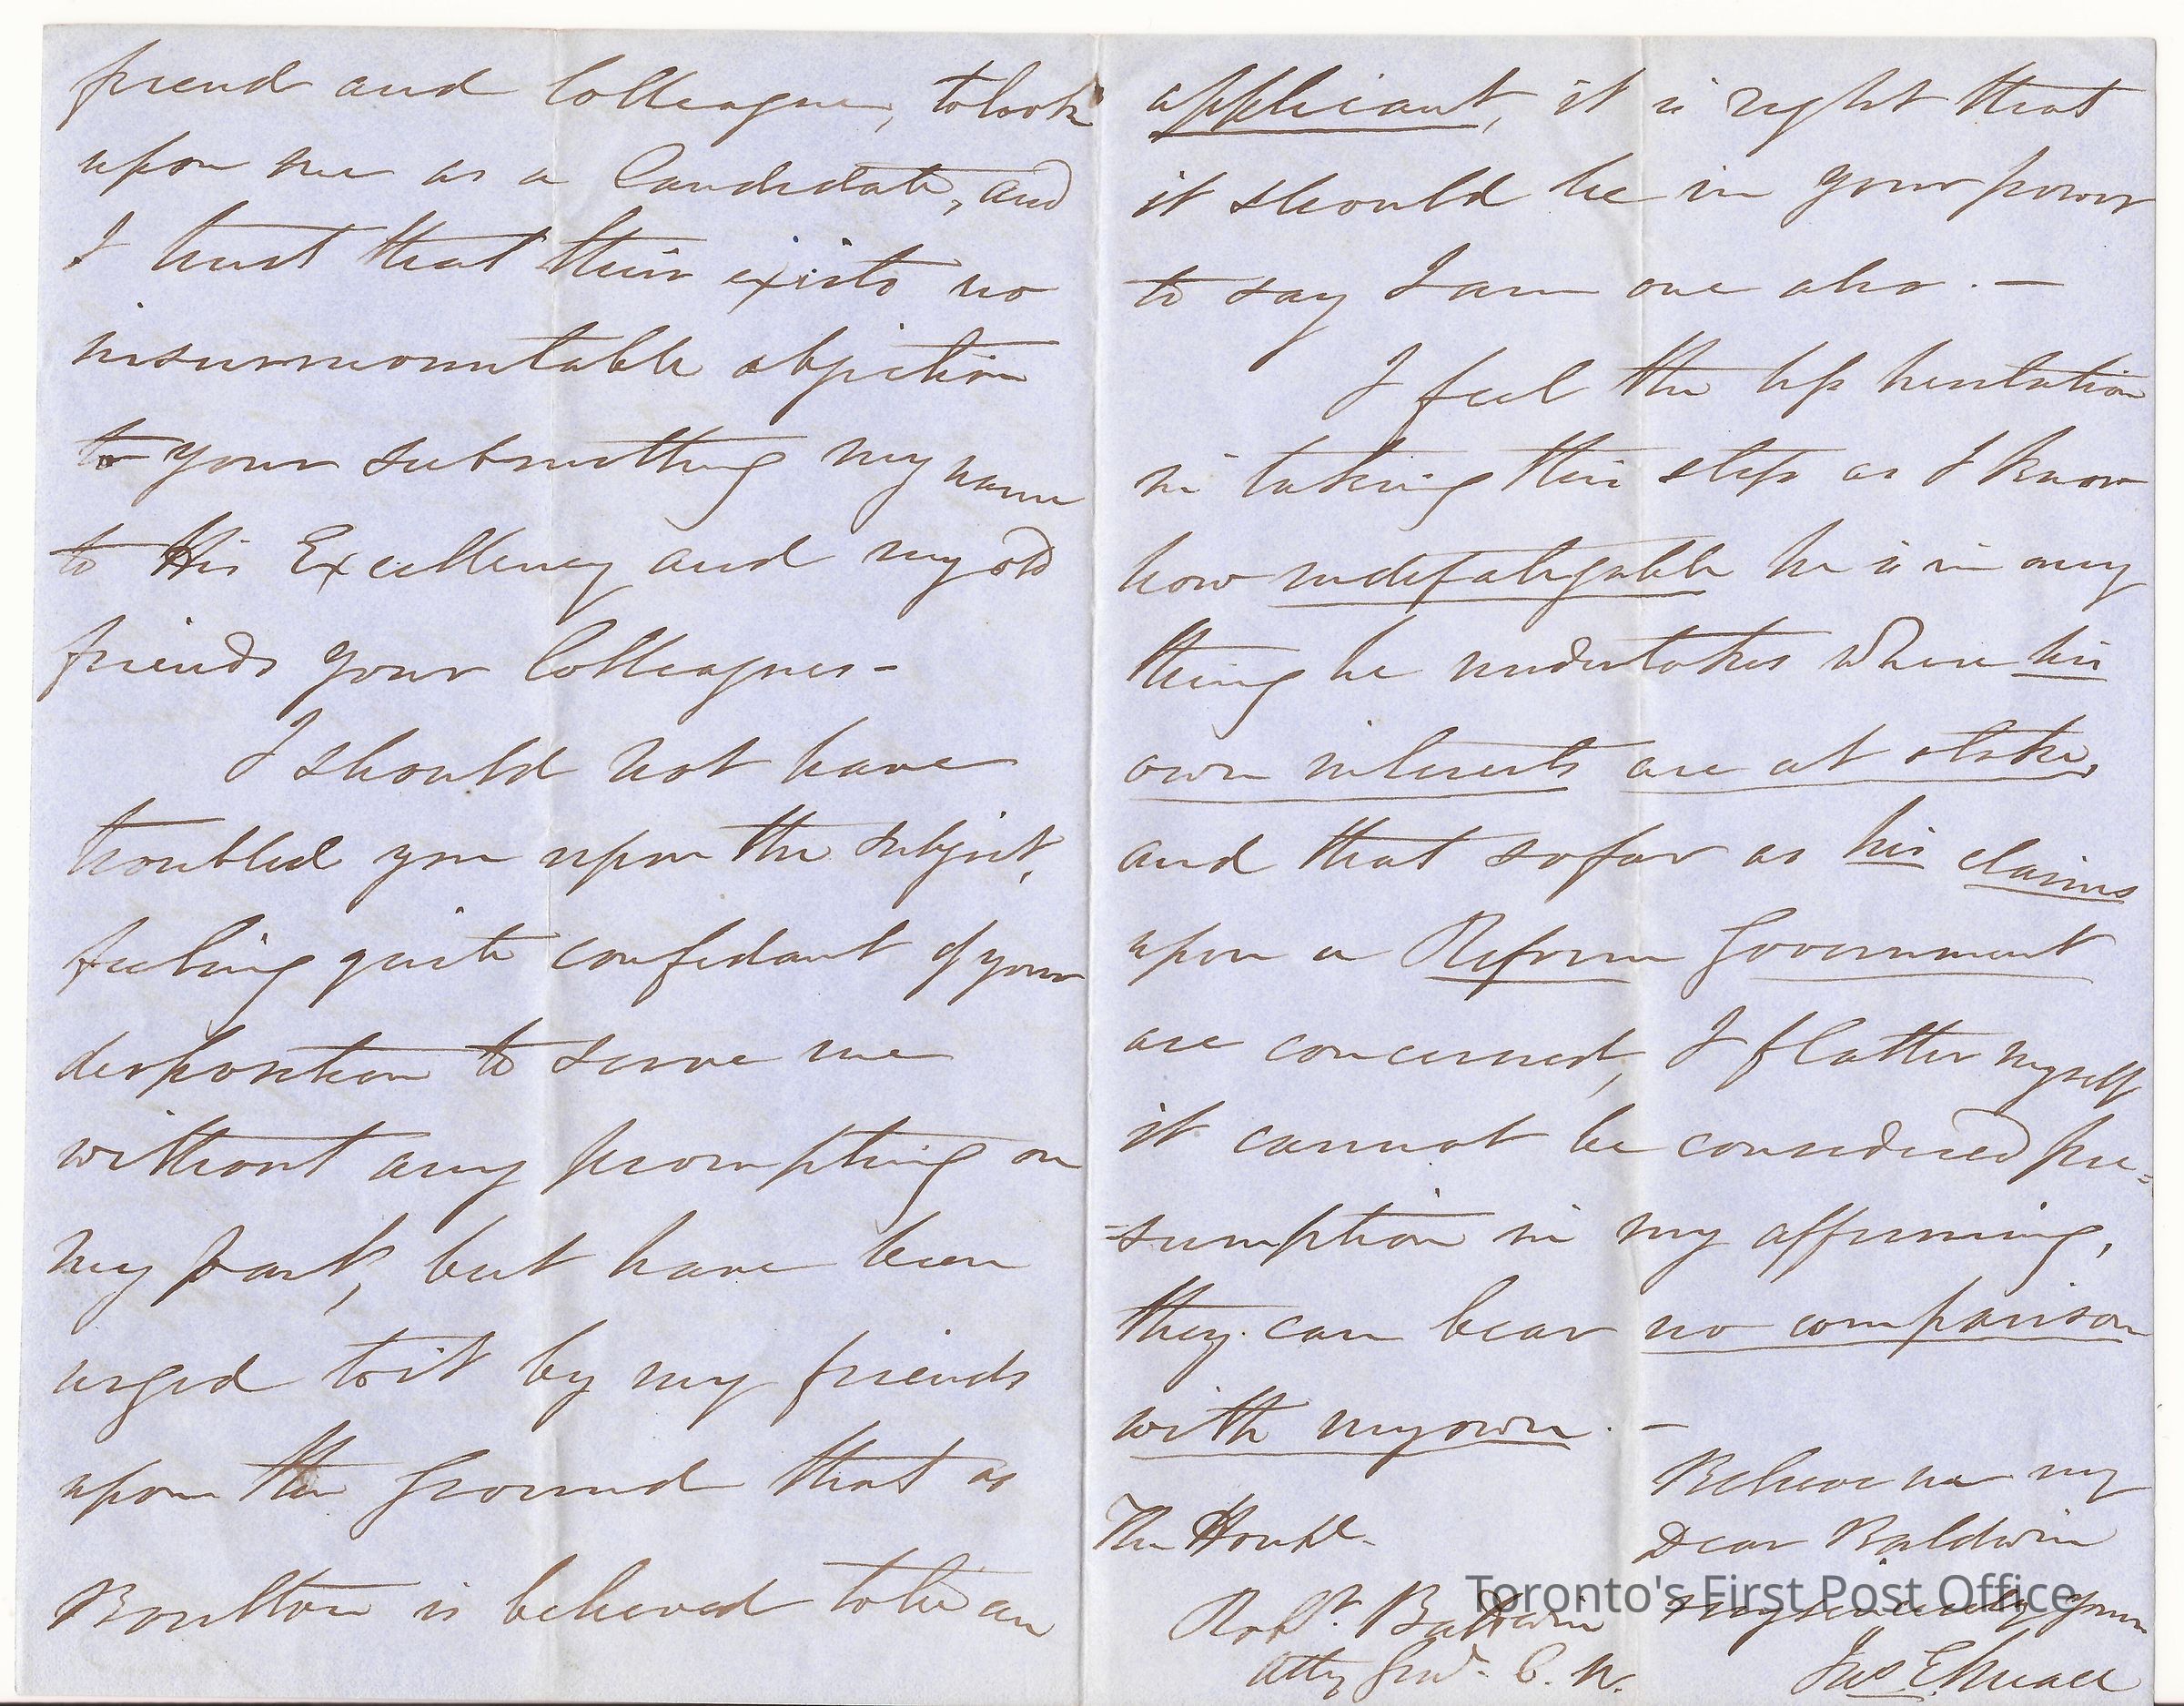 friend and Colleague, to look
upon me as a Candidate, and
I trust that their exists no
insurmountable objection
to your submitting my name
to His Excellency and my old
friends your Colleagues -
I should not have
troubled you upon the subject,
feeling quite confidant of your
disposition to serve me
without any prompting on
my part, but have been
urged to it by my friends
upon the ground that as
Boulton is believed to be an
applicant, it is right that
it should be in your power
to say I am one also. —
I feel the less hesitation
in taking this step as I know
how indefatigable he is in any
thing he undertakes where his
own interests are at stake,
and that so far as his claims
upon a Reform Government
are concerned, I flatter myself
it cannot be considered pre=
=sumption in my affirming,
they can bear no comparison
with my own. —
Believe me my
Dear Baldwin
very sincerely yours
Jas E Small
The Honble.
Robt. Baldwin
Atty Genl. C. W.
Toronto's First Post Office